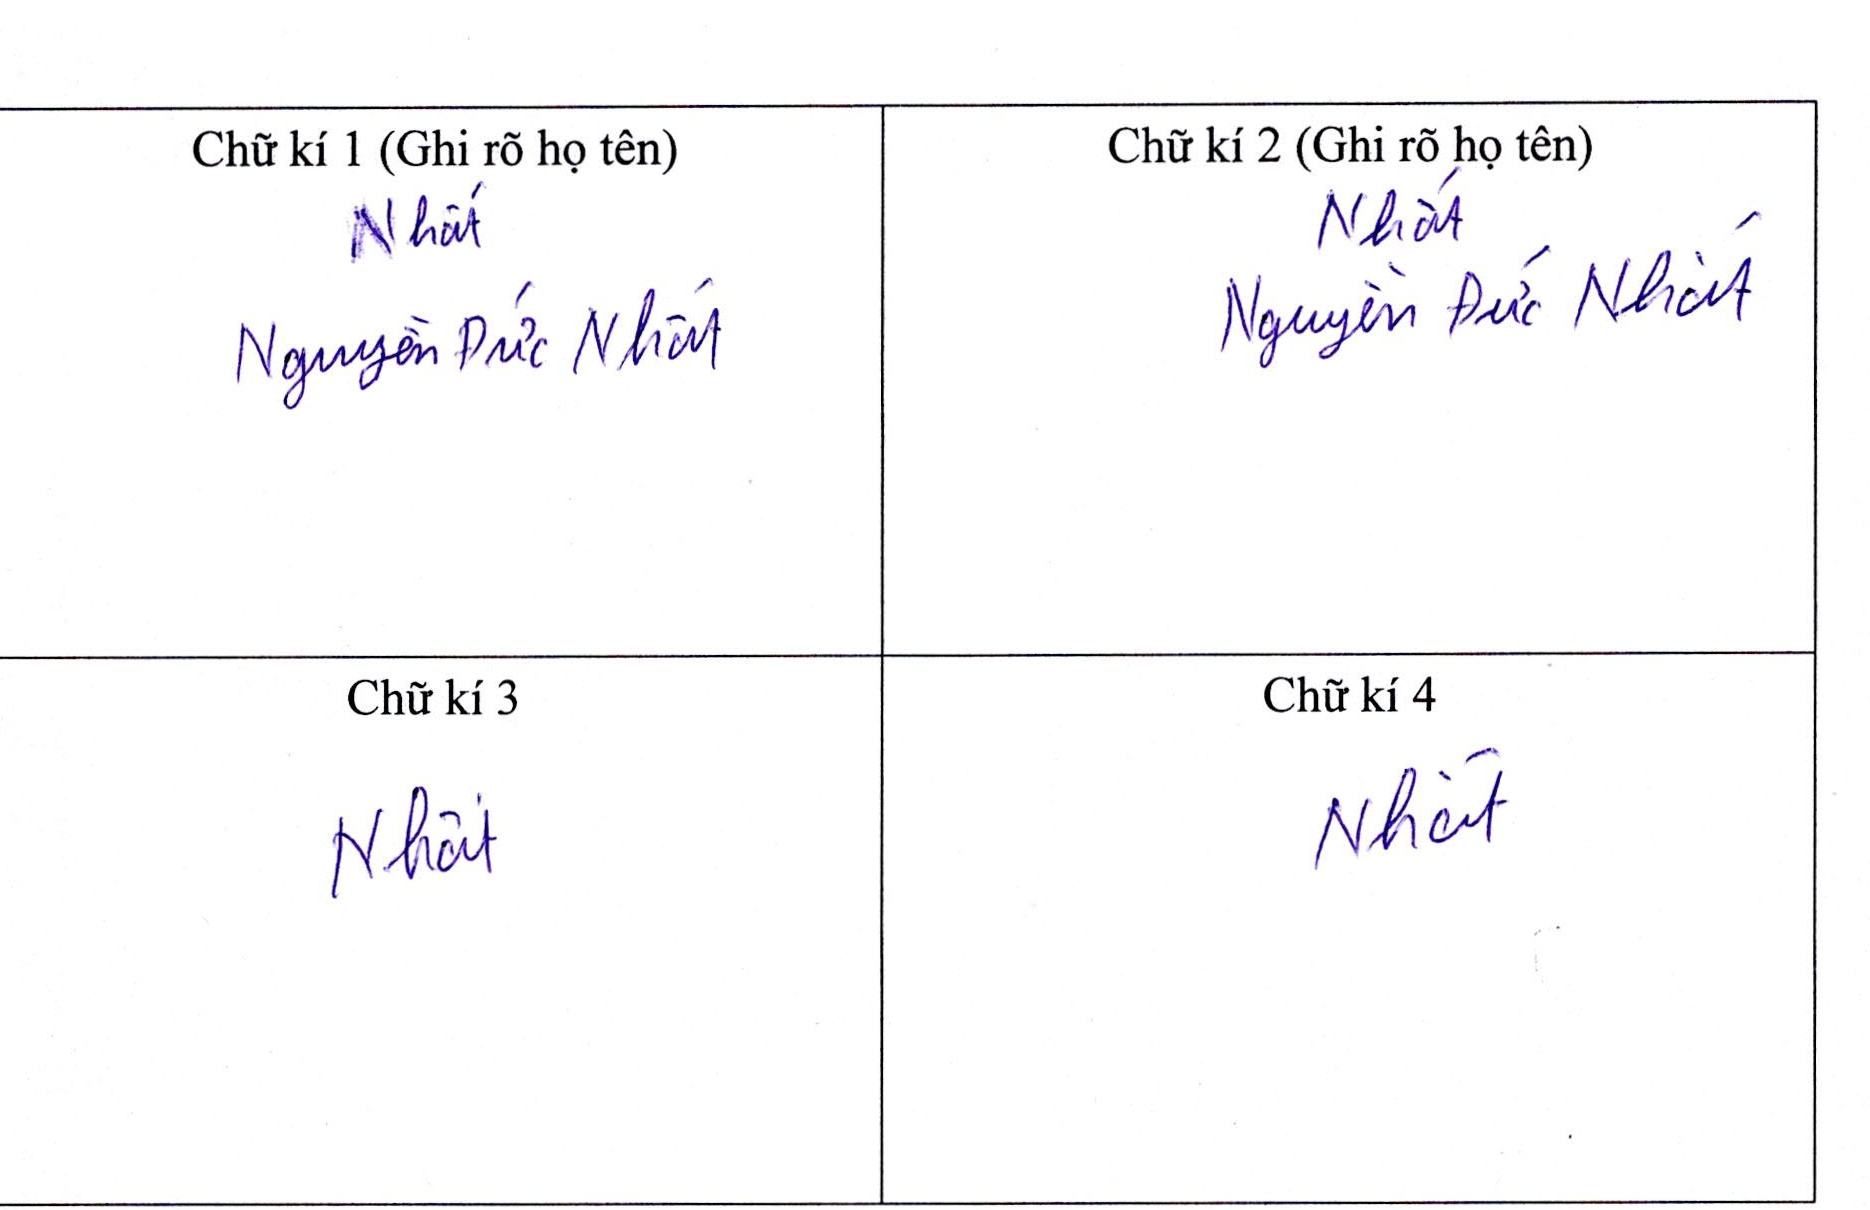 Chữ kí 1 (Ghi rõ họ tên)
Nhất
Nguyễn Đức Nhất
Chữ kí 2 (Ghi rõ họ tên)
Nhất
Nguyễn Đức Nhất
Chữ kí 3
Nhất
Chữ kí 4
Nhất